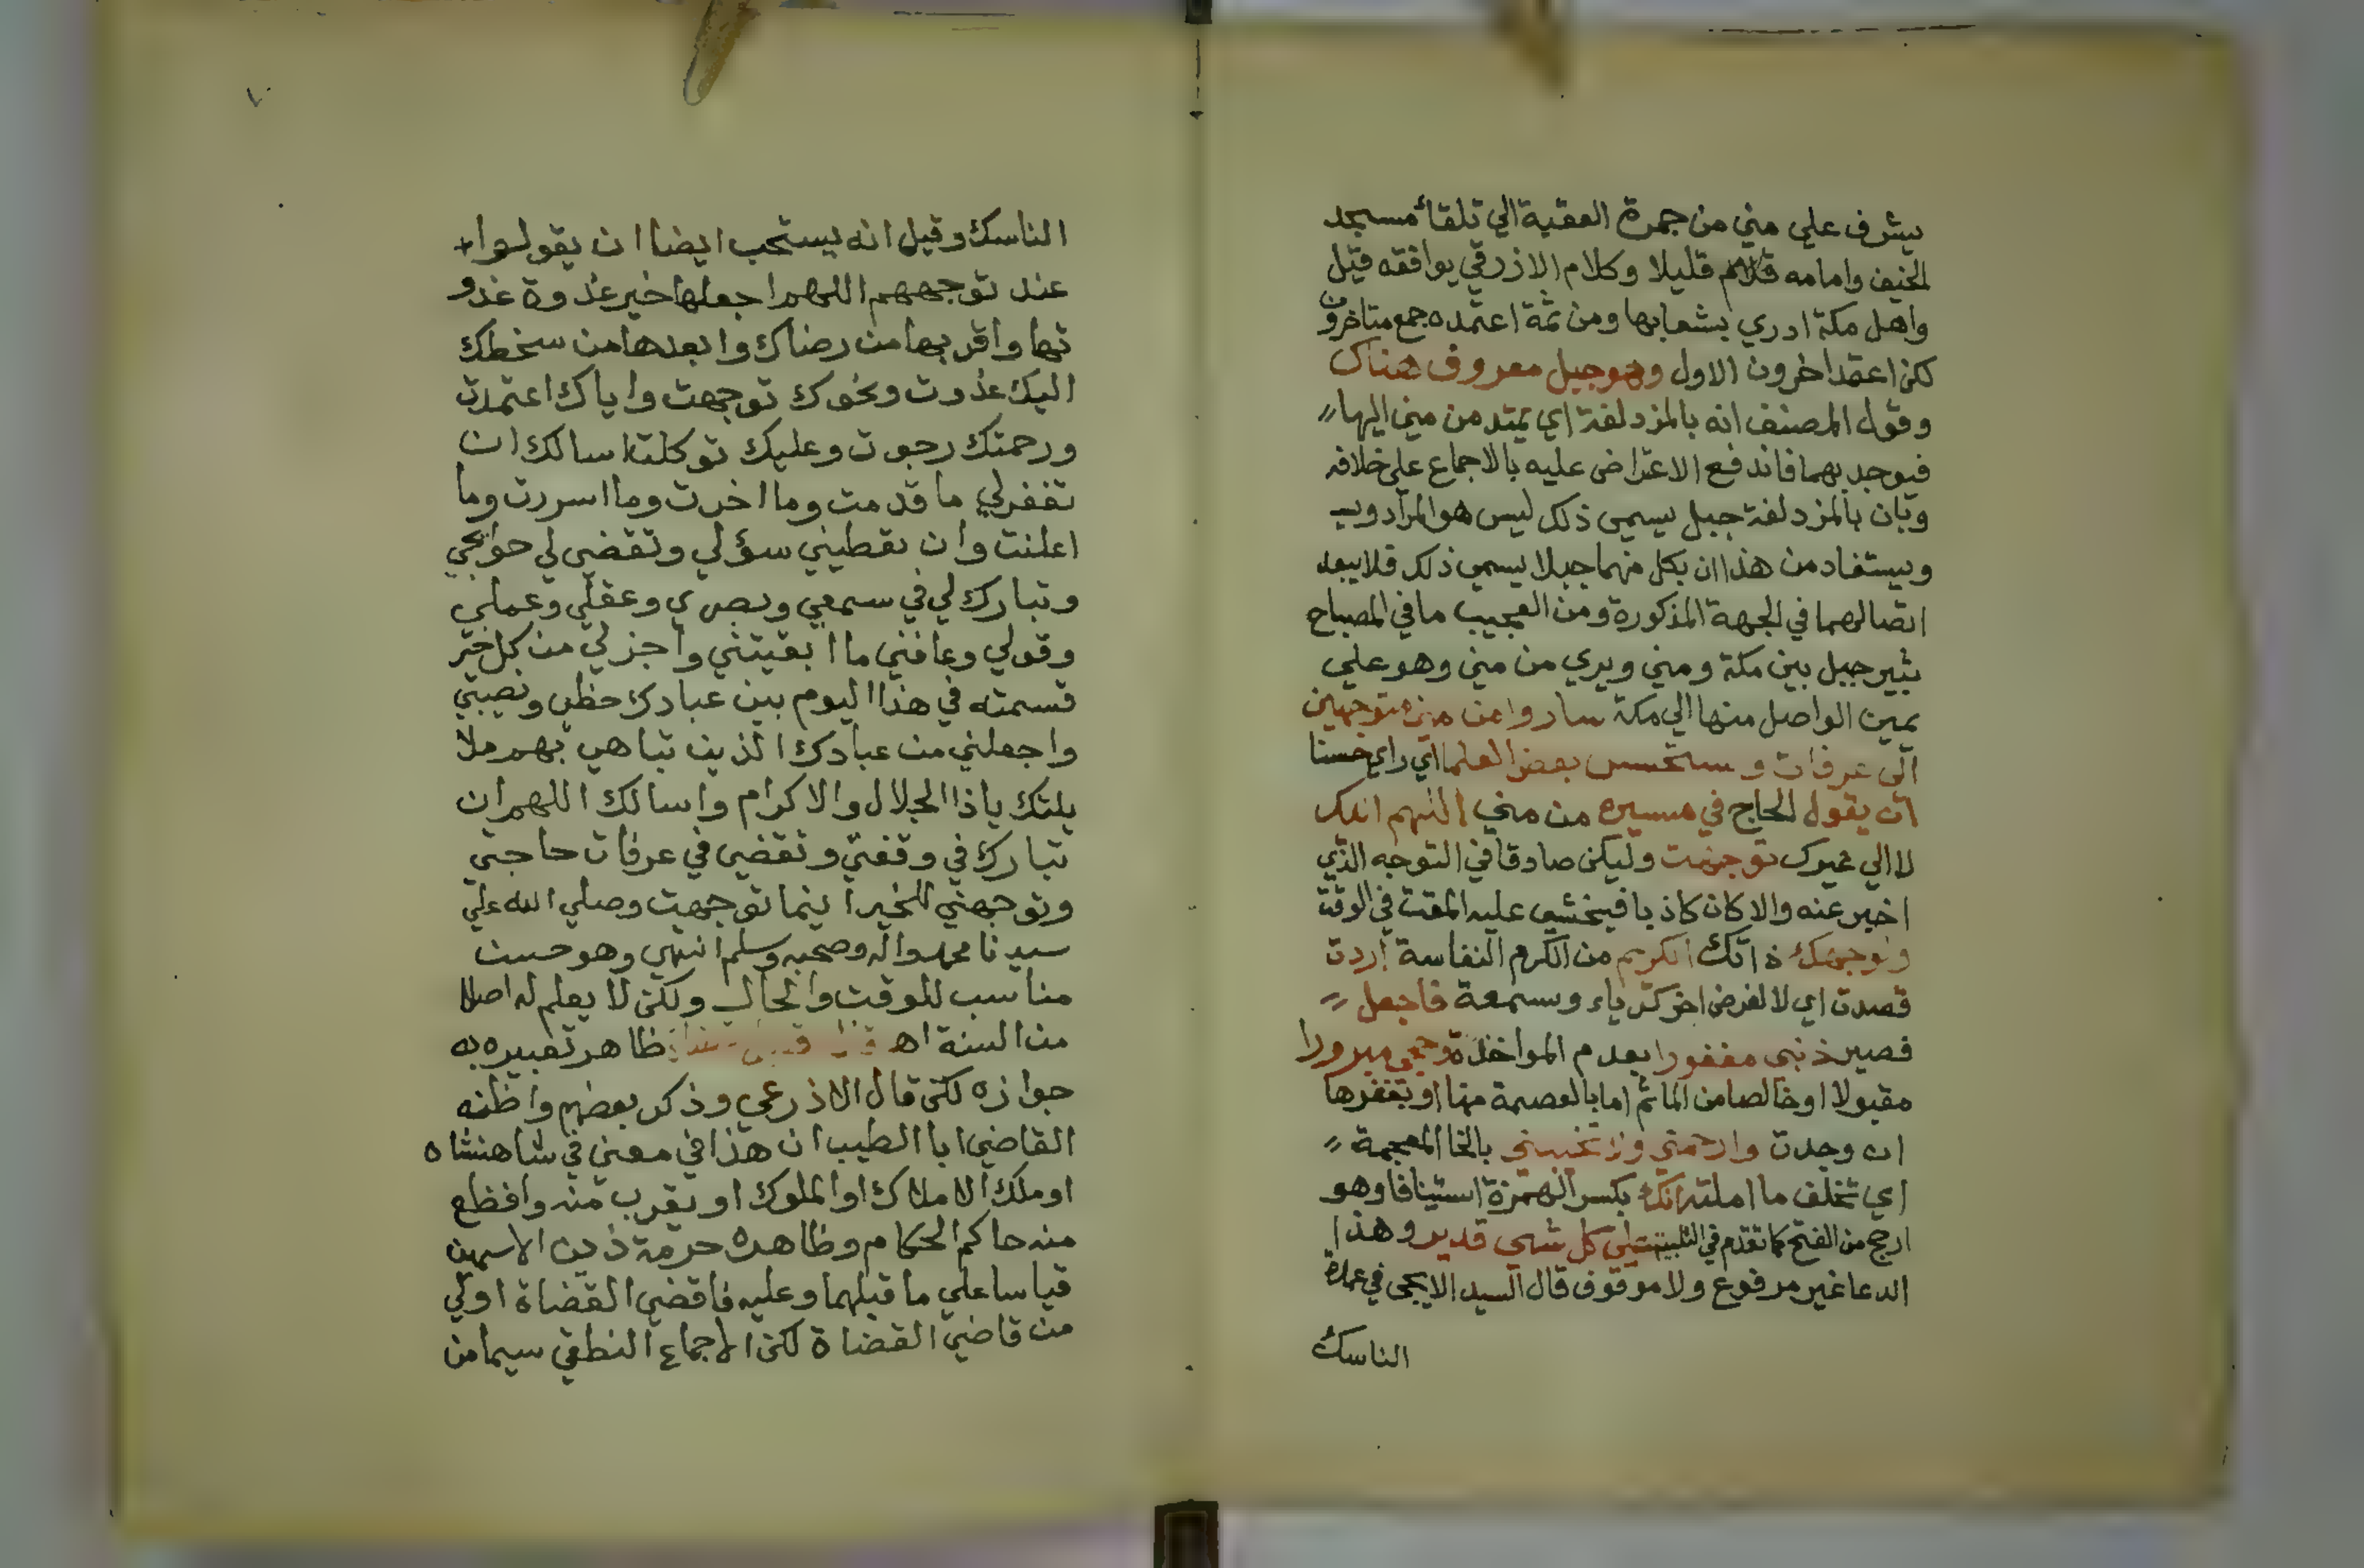 يشرف علي مني من جمرة العقبة الي تلقاء مسجد
الخيف وامامه قليلا وكلام الازرقي يوافقه قيل
واهل مكة ادري بشعابها ومن ثمة اعتمده جمع متاخرون
لكن اعتمد اخرون الاول وهو جبل معروف هناك
وقول المصنف انه بالمزدلفة اي يمتد من مني اليها
فيوجد بهما فاندفع الاعتراض عليه بالاجماع علي خلافه
وبان بالمزدلفة جبل يسمي ذلك ليس هو المراد
ويستفاد من هذا ان بكل منهما جبلا يسمي ذلك فلا يبعد
اتصالهما في الجهة المذكورة ومن العجيب ما في المصباح
ثبير جبل بين مكة ومني ويري من مني وهو علي
يمين الواصل منها الي مكة ساروا من مني متوجهين
الي عرفات و ستحسن بعض العلما اي راي حسنا
ان يقول الحاج في مسيره من مني اللهم اليك
لا الي غيرك توجهت وليكن صادقا في التوجه الذي
اخبر عنه والا كان كاذبا فيخشي عليه المقت في الوقت
ولوجهك ذاتك الكريم من الكرم النفاسة اردت
قصدت اي لا لغرض اخر كرياء وسمعة فاجعل
فصير ذنبي مغفورا بعدم المواخذة وحجي مبرورا
مقبولا او خالصا من الماثم اما بالعصمة منها او بغفرها
ان وجدت وارحمني ولا تخيبني بالخا المعجمة
اي تخلف ما املته انك بكسر الهمزة استينافا وهو
ارجح من الفتح كما تقدم في التلبية علي كل شي قدير وهذا
الدعا غير مرفوع ولا موقوف قال السيد الايجي في عمدة
الناسك
٧٠
الناسك وقيل انه يستحب ايضا ان يقولوا
عند توجههم اللهم اجعلها خير غدوة غدو
تها واقربها من رضاك وابعدها من سخطك
اليك غدوت ونحوك توجهت واياك اعتمدت
ورحمتك رجوت وعليك توكلت اسالك ان
تغفر لي ما قدمت وما اخرت وما اسررت وما
اعلنت وان تعطيني سؤلي وتقضي لي حوايجي
وتبارك لي في سمعي وبصري وعقلي وعملي
وقولي وعافني ما ابقيتني واجز لي من كل خير
قسمته في هذا اليوم بين عبادك حظي ونصيبي
واجعلني من عبادك الذين تباهي بهم ملا
يلتك ياذا الجلال والاكرام واسالك اللهم ان
تبارك في وقفتي وتقضي في عرفات حاجتي
وتوجهني للخير اينما توجهت وصلي الله علي
سيدنا محمد واله وصحبه وسلم انتهي وهو حسن
مناسب للوقت والحال ولكن لا يعلم له اصلا
من السنة اه ظاهر تعبيره به
جوازه لكن قال الاذرعي وذكر بعضهم واظنه
القاضي ابا الطيب ان هذا في معني في شاهنشاه
او ملك الاملاك او الملوك او يقرب منه وافظع
منه حاكم الحكام وظاهره حرمة ذين الاسمين
قياسا علي ما قبلهما وعليه فاقضي القضاة اولي
من قاضي القضاة لكن الاجماع النطقي سيما من